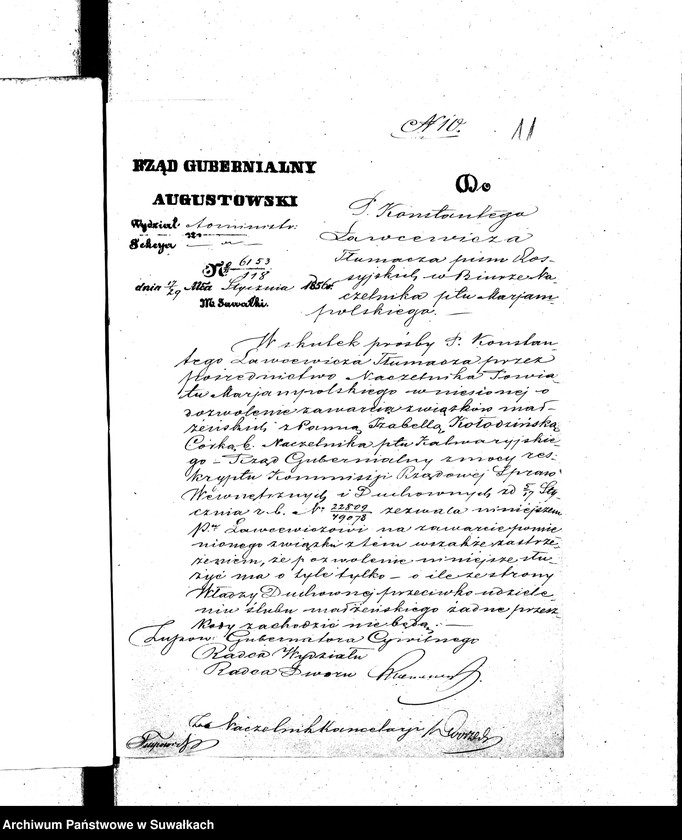 N 10. 11
RZĄD GUBERNIALNY
AUGUSTOWSKI
Wydział Administr:
Sekcya
№ 6153/118
dnia 17/29 Mca Stycznia 1856 r.
M. Suwałki.
Do
P. Konstantego
Ławcewicza
Tłumacza pism Ros-
syjskich w Biurze Na-
czelnika pttu Marjam-
polskiego. —
W skutek prośby P. Konstan-
tego Ławcewicza Tłumacza przez
pośrednictwo Naczelnika Powia-
tu Marjampolskiego wniesionej o
dozwolenie zawarcia związków mał-
żeńskich z Panną Izabellą Kołodzińską
Córką b. Naczelnika pttu Kalwaryjskie-
go — Rząd Gubernialny z mocy res-
kryptu Kommissji Rządowej Spraw
Wewnętrznych i Duchownych zd 5/17 Sty-
cznia r. b. Nr 22809/49078 zezwala niniejszem
P. Ławcewiczowi na zawarcie pomie-
nionego związku z tem wszakże zastrze-
żeniem, że pozwolenie niniejsze słu-
żyć ma o tyle tylko — o ile ze strony
Władzy Duchownej przeciwko udziele-
niu ślubu małżeńskiego żadne przesz-
kody zachodzić nie będą. —
Gubernatora Cywilnego
Radca Wydziału
Radca Dworu
Za Naczelnik Kancelaryi